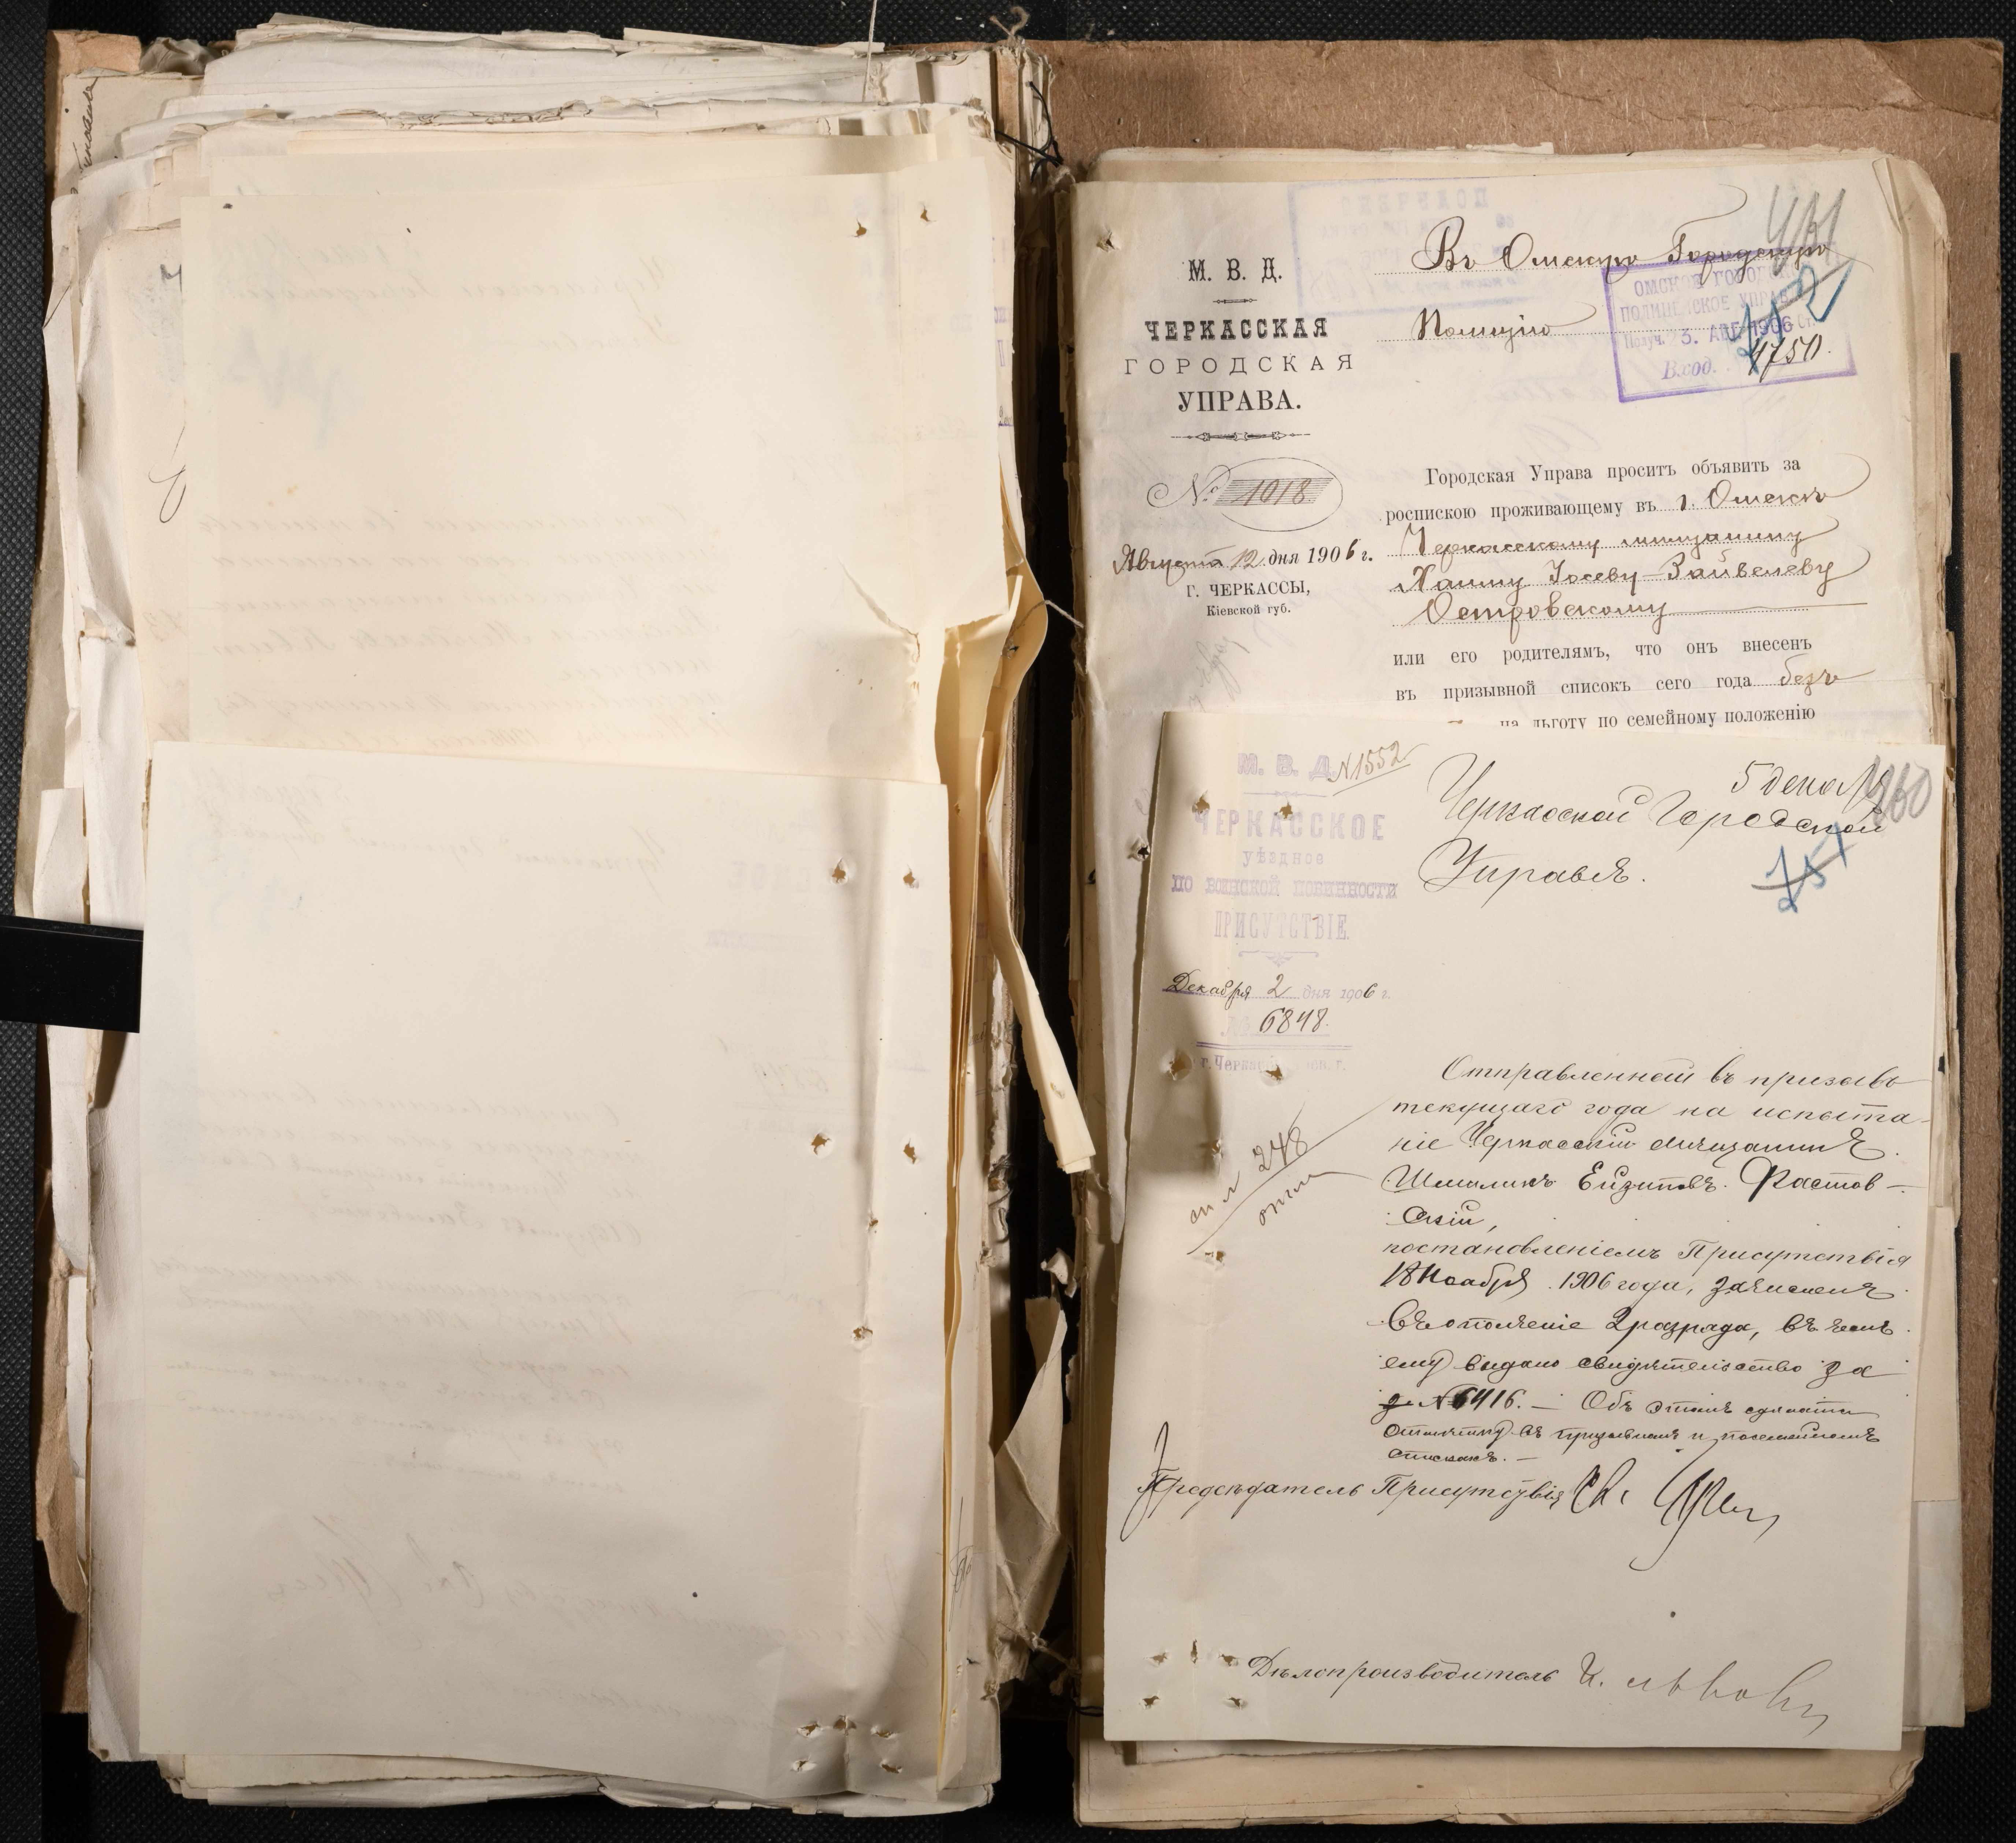 М. В. Д.
ЧЕРКАССКАЯ
ГОРОДСКАЯ
УПРАВА.
№ 1018
Августа 12 дня 1906 г.
Г. ЧЕРКАССЫ,
Кіевской губ.
431
Въ Омскую Городскую
Полицію
ОМСКОЕ ГОРОД
ПОЛИЦЕЙСКОЕ УПРАВ
Получ. 3. АВГ 1906
Вход. 4750.
Городская Управа проситъ объявить за
роспискою проживающему въ г. Омскѣ
Черкасскому мѣщанину
Хаиму Іосеву-Зайвелеву
Островскому
или его родителямъ, что онъ внесенъ
въ призывной списокъ сего года безъ
на льготу по семейному положенію
М. В. Д.
N1552
ЧЕРКАССКОЕ
уѣздное
по воинской повинности
ПРИСУТСТВІЕ.
Декабря 2 дня 1906 г.
№ 6848.
г. Черкассы
5 дека
460
Черкасской Городской
Управѣ.
248
Отправленный въ призывъ
текущаго года на испыта-
ніе Черкасскій мѣщанинъ
Шмиликъ Ейзиповъ Фастов-
скій,
постановленіемъ Присутствія
18 Ноября 1906 года, зачисленъ
въ ополченіе 2 разряда, въ чемъ
ему выдано свидѣтельство за
№ 6416. — Объ этомъ сдѣлать
отмѣтку въ призывномъ и посемейномъ
спискахъ. —
Предсѣдатель Присутствія
Дѣлопроизводитель